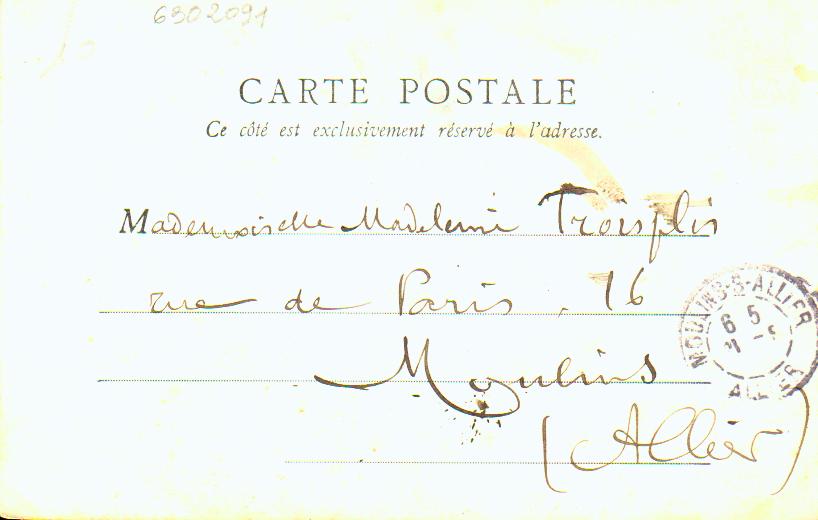 6302091
CARTE POSTALE
Ce côté est exclusivement réservé à l'adresse.
Mademoiselle Madeleine Troisplis
rue de Paris, 16
MOULINS-S-ALLIER
6 5
ALLIER
Moulins
(Allier)